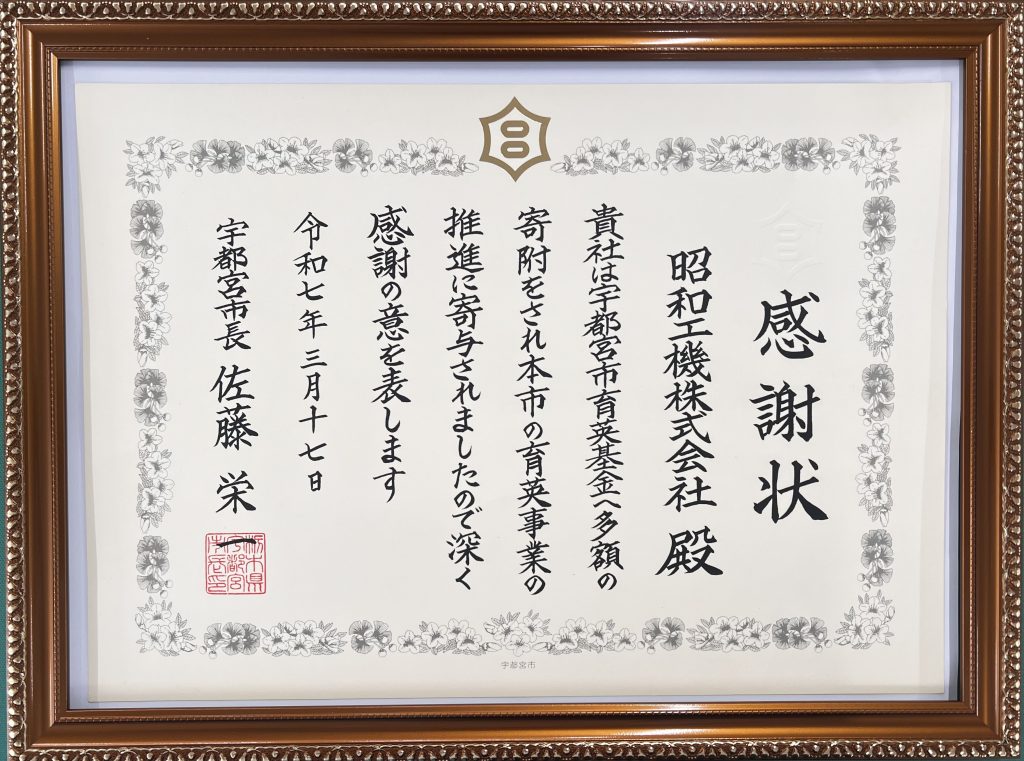 感謝状
昭和工機株式会社 殿
貴社は宇都宮市育英基金へ多額の
寄附をされ本市の育英事業の
推進に寄与されましたので深く
感謝の意を表します
令和七年三月十七日
宇都宮市長 佐藤 栄一
栃木県宇都宮市長之印
宇都宮市